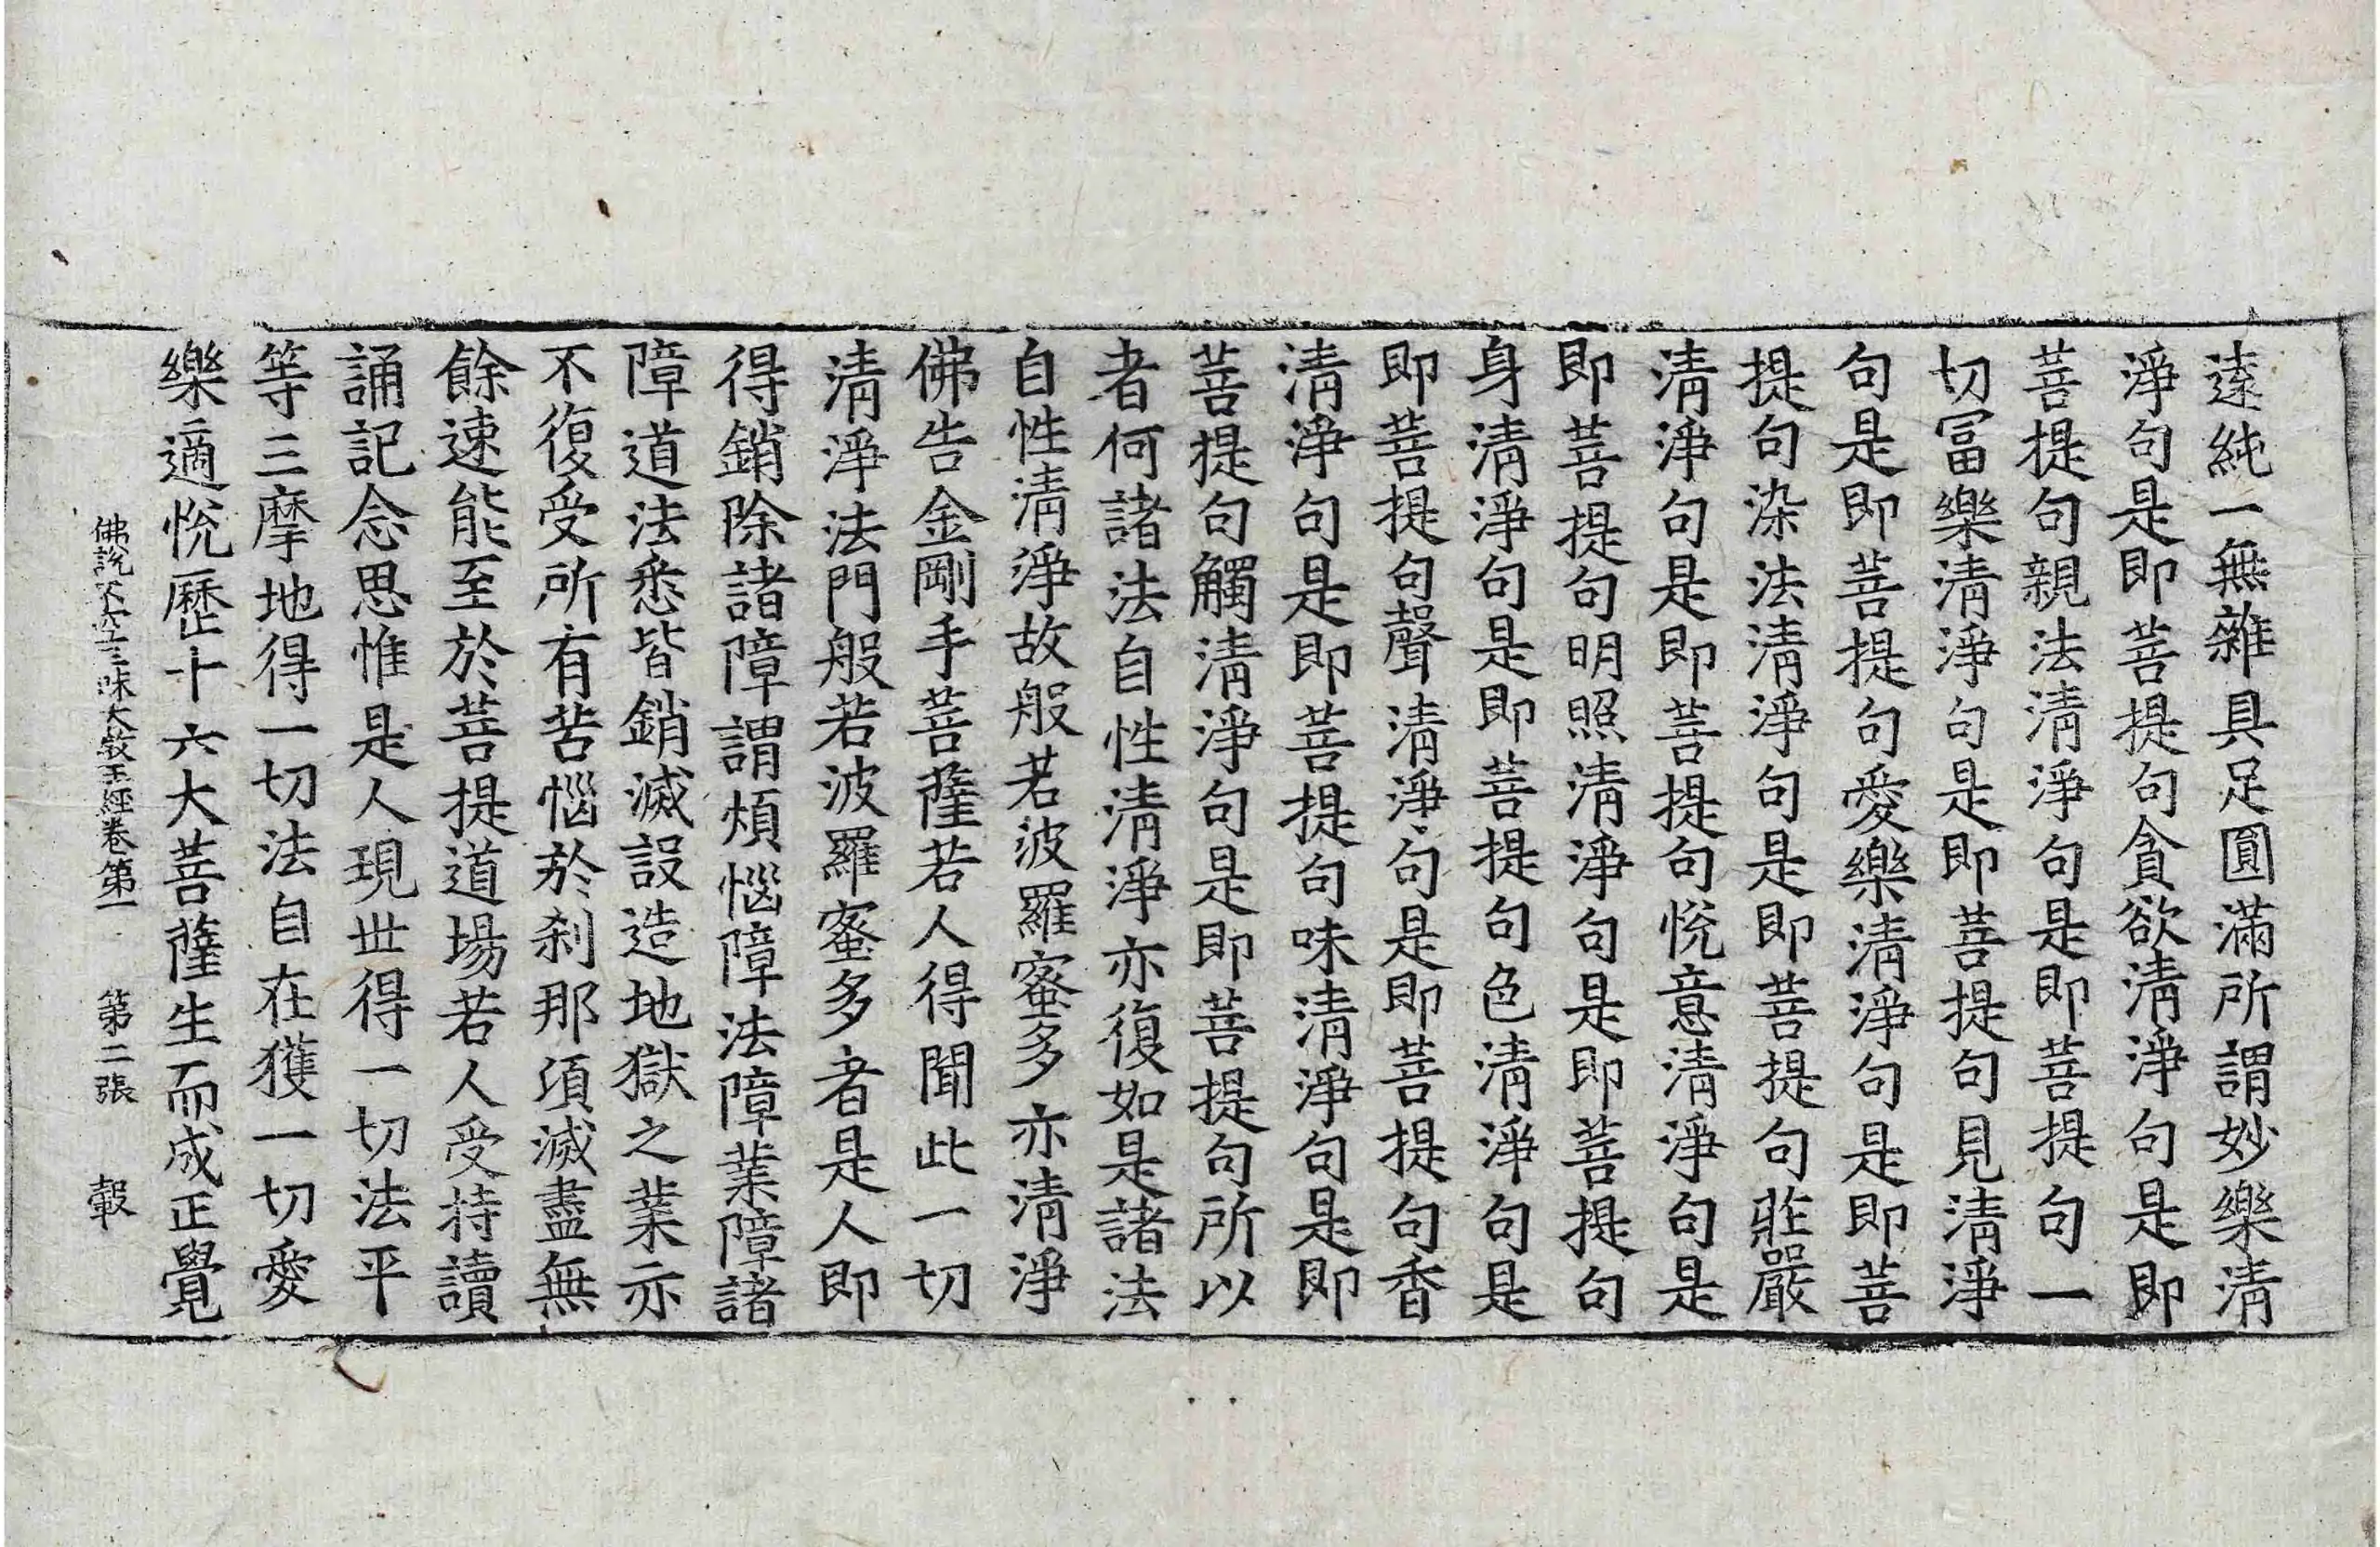 遠純一無雜具足圓滿所謂妙樂清
淨句是即菩提句貪欲清淨句是即
菩提句親法清淨句是即菩提句一
切冨樂清淨句是即菩提句見清淨
句是即菩提句愛樂清淨句是即菩
提句染法清淨句是即菩提句莊嚴
清淨句是即菩提句悅意清淨句是
即菩提句明照清淨句是即菩提句
身清淨句是即菩提句色清淨句是
即菩提句聲清淨句是即菩提句香
清淨句是即菩提句味清淨句是即
菩提句觸清淨句是即菩提句所以
者何諸法自性清淨亦復如是諸法
自性清淨故般若波羅蜜多亦清淨
佛告金剛手菩薩若人得聞此一切
清淨法門般若波羅蜜多者是人即
得銷除諸障謂煩惱障法障業障諸
障道法悉皆銷滅設造地獄之業亦
不復受所有苦惱於刹那湏滅盡無
餘速能至於菩提道場若人受持讀
誦記念思惟是人現世得一切法平
等三摩地得一切法自在獲一切愛
樂適悅歷十六大菩薩生而成正覺
佛說不空三昧大教王經卷第一 第二張 轂